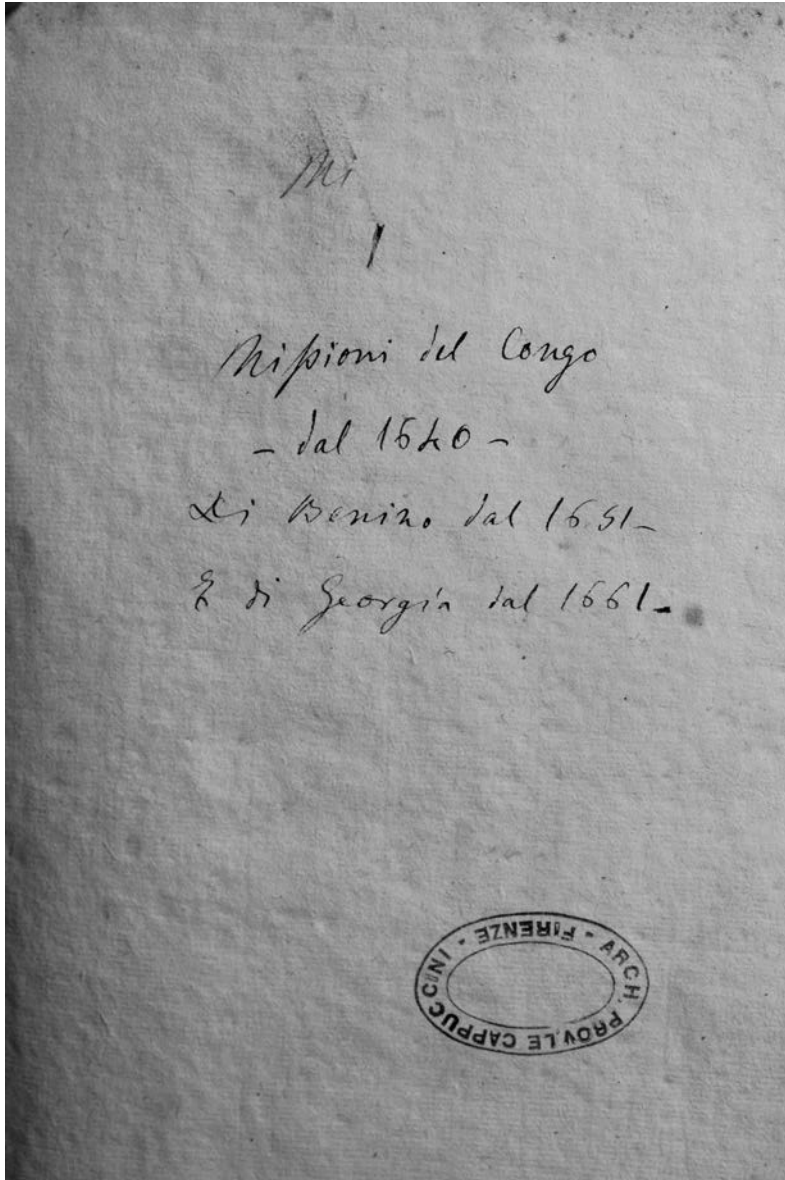 Mi
1
Missioni del Congo
- dal 1640 -
Di Benino dal 1651-
E di Georgia dal 1661-
ARCH. PROV.LE CAPPUCCINI - FIRENZE -